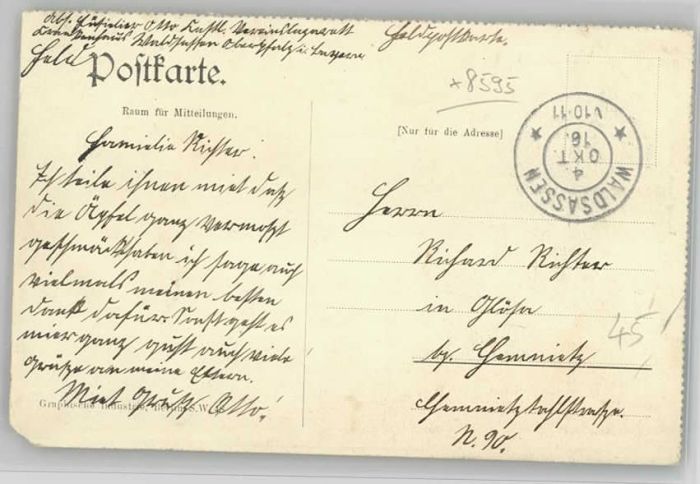 Abs. Füsilier Otto Kastl. Vereinslazarett
Krankenhaus Waldsassen Oberpfalz i. Bayern
Feldpostkarte.
Feld
Postkarte.
*8595
Raum für Mitteilungen.
[Nur für die Adresse]
WALDSASSEN
4
OKT.
16.
V10-11
Hamielie Richter!
Ich teile ihnen miet daß
die Äpfel ganz
geschmäckt haben ich sage auch
vielmals meinen besten
dank dafür. Sonst geht es
mier ganz guht auch viele
Grüße an meine Eltern.
Miet Gruß Otto!
Graphische Industrie, Berlin S.W.
Herrn
Richard Richter
in Glösa
bg. Chemnietz
Chemnietzthalstraße.
N. 90.
45